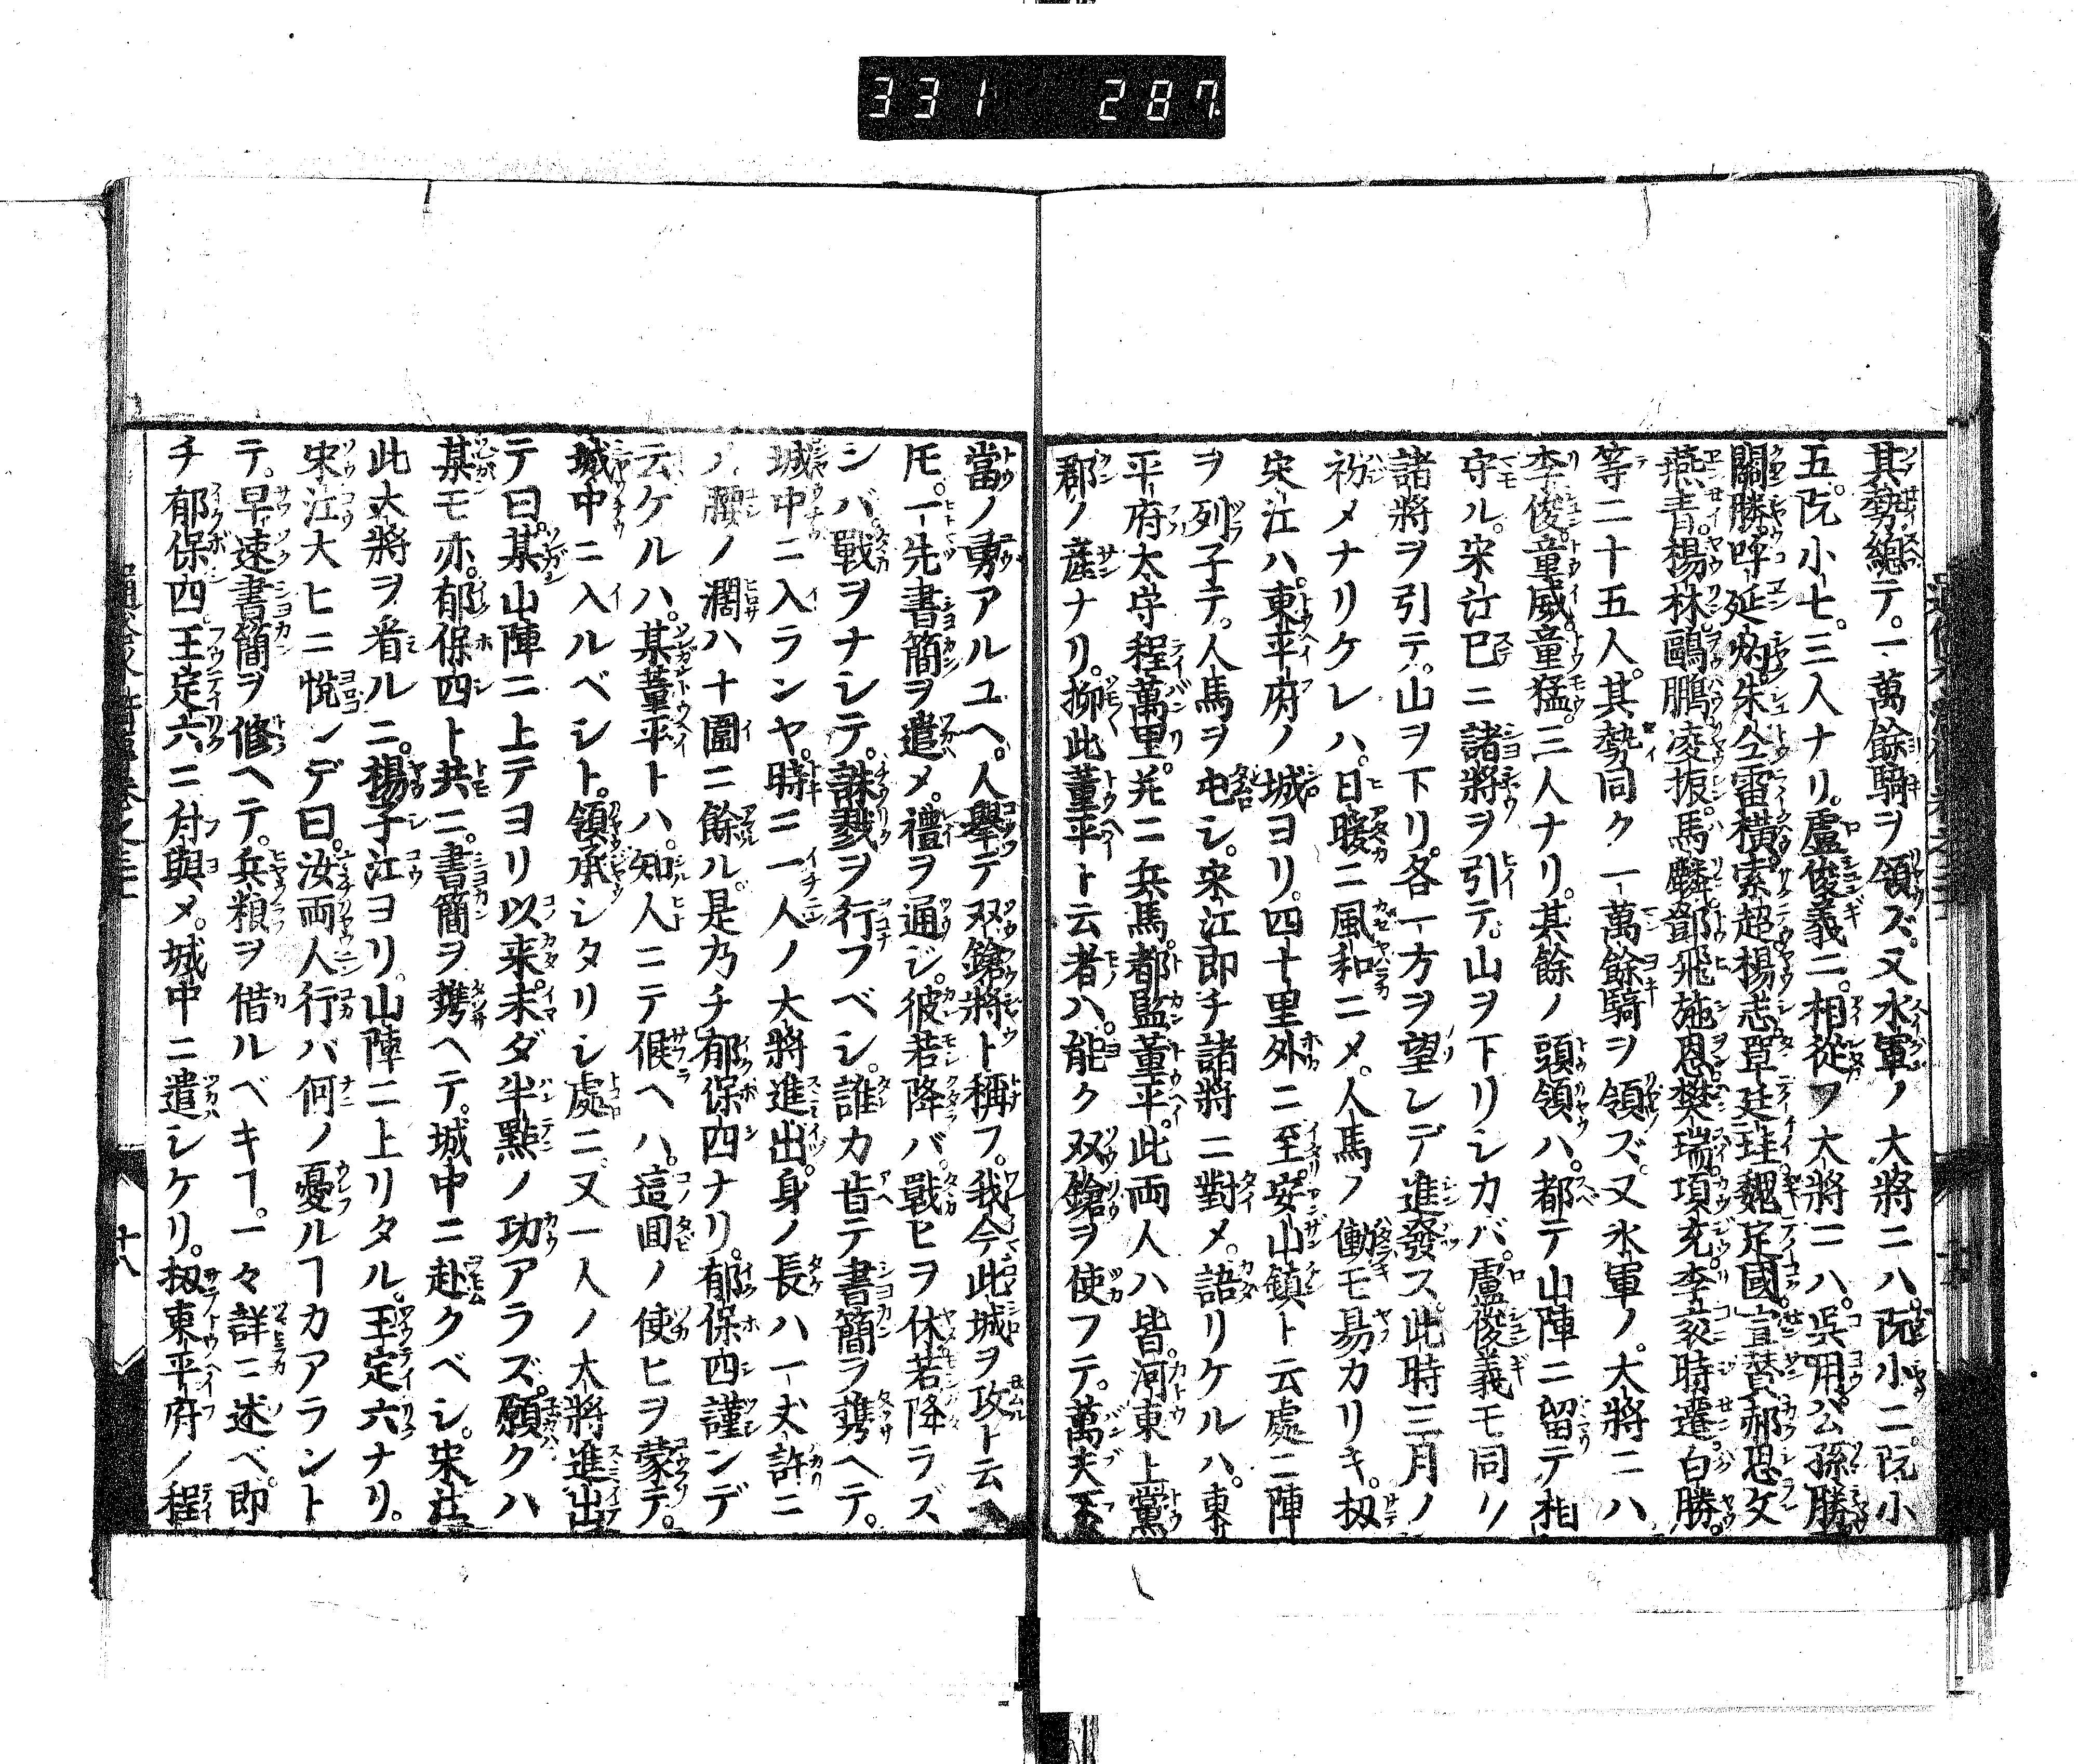 331 287
其勢總テ。一萬餘騎ヲ領ズ。又水軍ノ大將ニハ。阮小二。阮小
五。阮小七。三人ナリ。盧俊義ニ。相從フ大將ニハ。呉用。公孫勝
關勝。呼延灼。朱仝。雷横。索超。楊志。單廷珪。魏定國。宣賛。郝思文
燕青。楊林。鷗鵬。凌振。馬麟。鄧飛。施恩。樊瑞。項充。李袞。時遷。白勝。
等二十五人。其勢同ク一萬餘騎ヲ領ズ。又水軍ノ。大將ニハ
李俊。童威。童猛。三人ナリ。其餘ノ頭領ハ。都テ山陣ニ留テ相
守ル。宋江已ニ諸將ヲ引テ。山ヲ下リシカバ。盧俊義モ同ク
諸將ヲ引テ。山ヲ下リ。各一方ヲ望ンデ進發ス。此時三月ノ
初メナリケレハ。日暖ニ風和ニメ。人馬ノ働モ易カリキ。扨
宋江ハ。東平府ノ城ヨリ。四十里外ニ至安山鎮ト云處ニ陣
ヲ列子テ。人馬ヲ屯シ。宋江即チ諸將ニ對メ。語リケルハ。東
平府太守程萬里。并ニ兵馬。都監董平。此両人ハ皆。河東上黨
郡ノ産ナリ。抑此董平ト云者ハ。能ク双鎗ヲ使フテ。萬夫不
當ノ勇アルユヘ。人擧テ双鎗將ト稱フ。我今此城ヲ攻ト云ヘ
𪜈。一先書簡ヲ遣メ。禮ヲ通シ。彼若降バ。戰ヒヲ休。若降ラズ
シバ。戰ヲナシテ。誅戮ヲ行フベシ。誰カ肯テ書簡ヲ携ヘテ。
城中ニ入ランヤ。時ニ一人ノ大將進出。身ノ長ハ一丈許ニ
腰ノ濶ハ十圍ニ餘ル。是乃チ郁保四ナリ。郁保四謹ンデ
云ケルハ。某董平トハ。知人ニテ候ヘハ。這囬ノ使ヒヲ蒙テ。
城中ニ入ルベシト。領承シタリシ處ニ。又一人ノ大將進出
テ曰。某山陣ニ上テヨリ以来。未ダ半點ノ功アラズ。願クハ
某モ亦。郁保四ト共ニ。書簡ヲ携ヘテ。城中ニ赴クベシ。宋江
此大將ヲ看ルニ。楊子江ヨリ。山陣ニ上リタル。王定六ナリ。
宋江大ヒニ悦ンデ曰。汝両人行バ何ノ憂ルヿカアラント
テ。早速書簡ヲ修ヘテ。兵粮ヲ借ルベキヿ。一々詳ニ述ベ。即
チ郁保四。王定六。ニ付與メ。城中ニ遣シケリ。扨東平府ノ程
十八